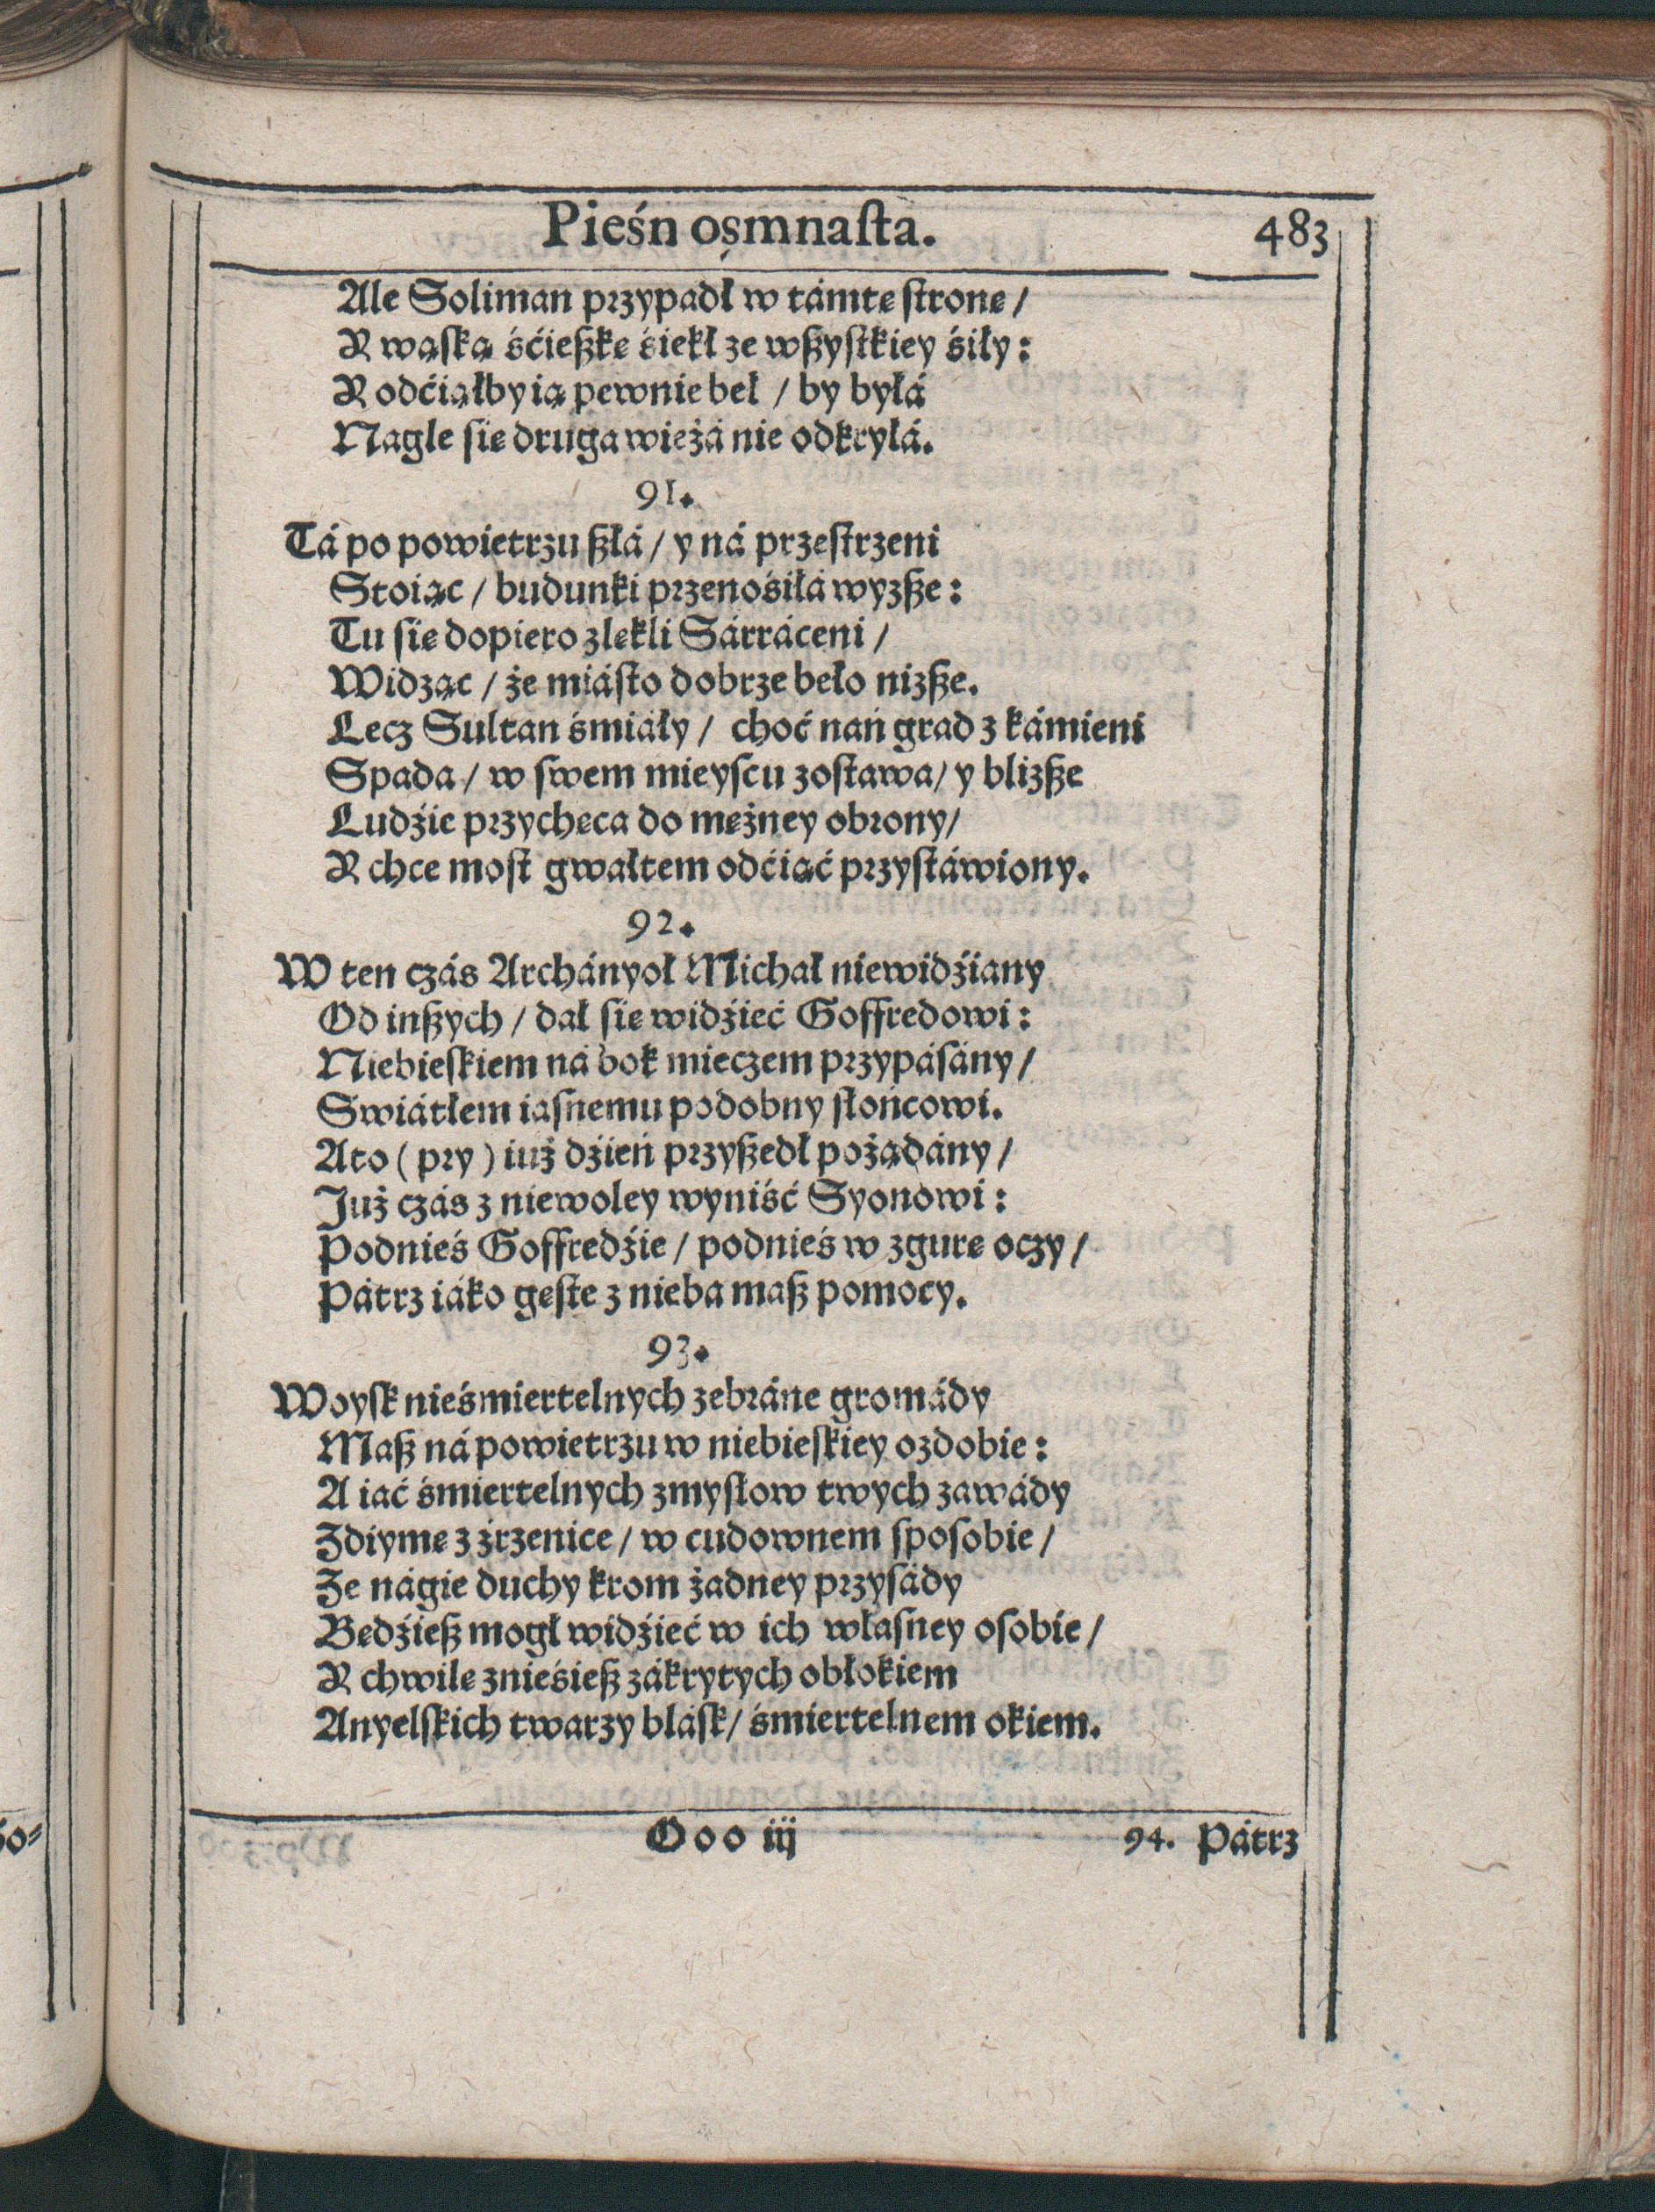 Pieśń osmnaſta. 483
Ale Soliman przypadł w támtę ſtronę /
Y wąſką śćieſzkę śiekł ze wſzyſtkiey śiły :
Y odćiąłby ią pewnie beł / by byłá
Nagle ſię druga wieżá nie odkryłá.
91.
Tá po powietrzu ſzłá / y ná przeſtrzeni
Stoiąc / budunki przenośiłá wyzſze :
Tu ſię dopiero zlękli Sárráceni /
Widząc / że miáſto dobrze beło nizſze.
Lecz Sultan śmiáły / choć nań grad z kámieni
Spada / w ſwem mieyſcu zoſtawa / y blizſze
Ludźie przychęca do mężney obrony /
Y chce moſt gwałtem odćiąć przyſtáwiony.
92.
W ten czás Archányoł Michał niewidźiany
Od inſzych / dał ſię widźieć Goffredowi :
Niebieſkiem ná bok mieczem przypáſány /
Swiátłem iaſnemu podobny słońcowi.
Ato ( pry ) iuż dźień przyſzedł pożądány /
Już czás z niewoley wyniść Syonowi :
Podnieś Goffredźie / podnieś w zgurę oczy /
Pátrz iáko gęſte z nieba maſz pomocy.
93.
Woyſk nieśmiertelnych zebráne gromády
Maſz ná powietrzu w niebieſkiey ozdobie :
A iać śmiertelnych zmyſłow twych zawády
Zdiymę z źrzenice / w cudownem ſpoſobie /
Ze nágie duchy krom żadney przyſády
Będźieſz mogł widźieć w ich właſney oſobie /
Y chwilę znieśieſz zákrytych obłokiem
Anyelſkich twarzy bláſk / śmiertelnem okiem.
Ooo iij 94. Pátrz